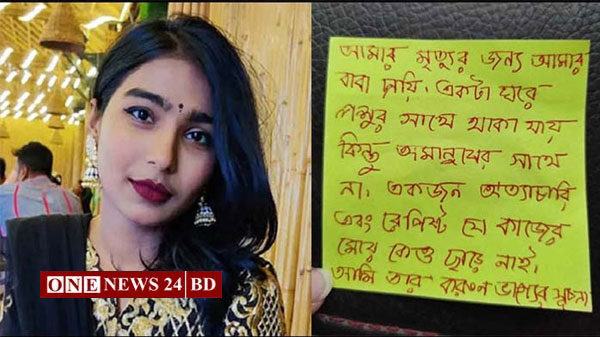 আমার মৃত্যুর জন্য আমার
বাবা দায়ি. একটা ঘরে
পশুর সাথে থাকা যায়
কিন্তু অমানুষের সাথে
না. একজন অত্যাচারি
এবং রেপিস্ট যে কাজের
মেয়ে কেও ছাড়ে নাই.
আমি তার করুণ ভাগ্যের সূচনা
ONE NEWS 24 BD